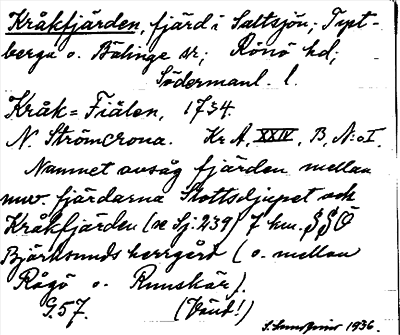 Kråkfjärden, fjärd i Saltsjön; Tyst-
berga o. Bälinge sr; Rönö hd;
Södermanl. l.
Kråk=Fiälen, 1734.
N. Strömcrona. Kr A, XXIV, B, N:o I.
Namnet avsåg fjärden mellan
nuv. fjärdarna Slottsdjupet och
Kråkfjärden (se Sj: 239) 7 km. SSÖ
Björksunds herrgård (o. mellan
Rågö o. Runskär).
G. 57. (Vänd!)
1936.